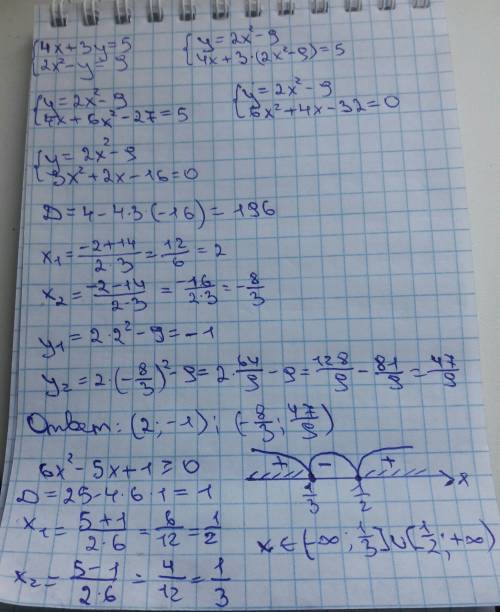 {4x+3y=5   {y=2x²-9
{2x²-y=9   {4x+3·(2x²-9)=5
{y=2x²-9   {y=2x²-9
{4x+6x²-27=5   {6x²+4x-32=0
{y=2x²-9
{3x²+2x-16=0
D=4-4·3·(-16)=196
x₁=(-2+14)/(2·3)=12/6=2
x₂=(-2-14)/(2·3)=-16/(2·3)=-8/3
y₁=2·2²-9=-1
y₂=2·(-8/3)²-9=2·64/9-9=128/9-81/9=47/9
Ответ: (2;-1); (-8/3; 47/9)
6x²-5x+1≥0
+ - + x
1/3 1/2
D=25-4·6·1=1
x₁=(5+1)/(2·6)=6/12=1/2
x∈(-∞; 1/3]∪[1/2; +∞)
x₂=(5-1)/(2·6)=4/12=1/3